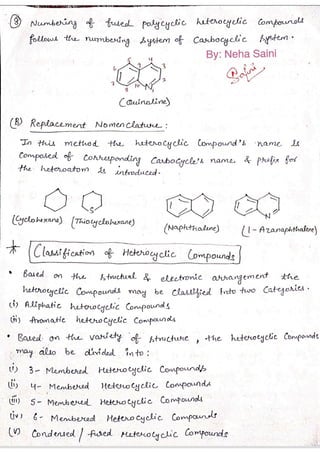 ③ Numbering of fused polycyclic heterocyclic compounds
follows the numbering system of Carbocyclic system.
By: Neha Saini
Saini
5 4
6 3
7 2
8 N 1
(Quinoline)
(B) Replacement Nomenclature:
In this method the heterocyclic compound's name is
composed of corresponding Carbocycle's name & prefix for
the heteroatom is introduced.
S N
(Cyclohexane) (Thiocyclohexane) (Naphthalene) (1-Azanaphthalene)
* Classification of Heterocyclic Compounds
• Based on the structual & electronic arrangement the
heterocyclic Compounds may be Classified into two Categories.
(i) Aliphatic heterocyclic Compounds
(ii) Aromatic heterocyclic Compounds
• Based on the variety of structure, the heterocyclic Compounds
may also be divided into:
(i) 3-Membered Heterocyclic Compounds
(ii) 4-Membered Heterocyclic Compounds
(iii) 5-Membered Heterocyclic Compounds
(iv) 6-Membered Heterocyclic Compounds
(v) Condensed / fused Heterocyclic Compounds